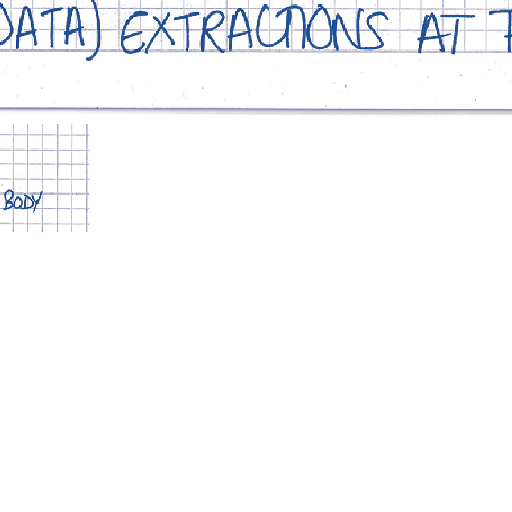 DATA) EXTRACTIONS AT
BODY